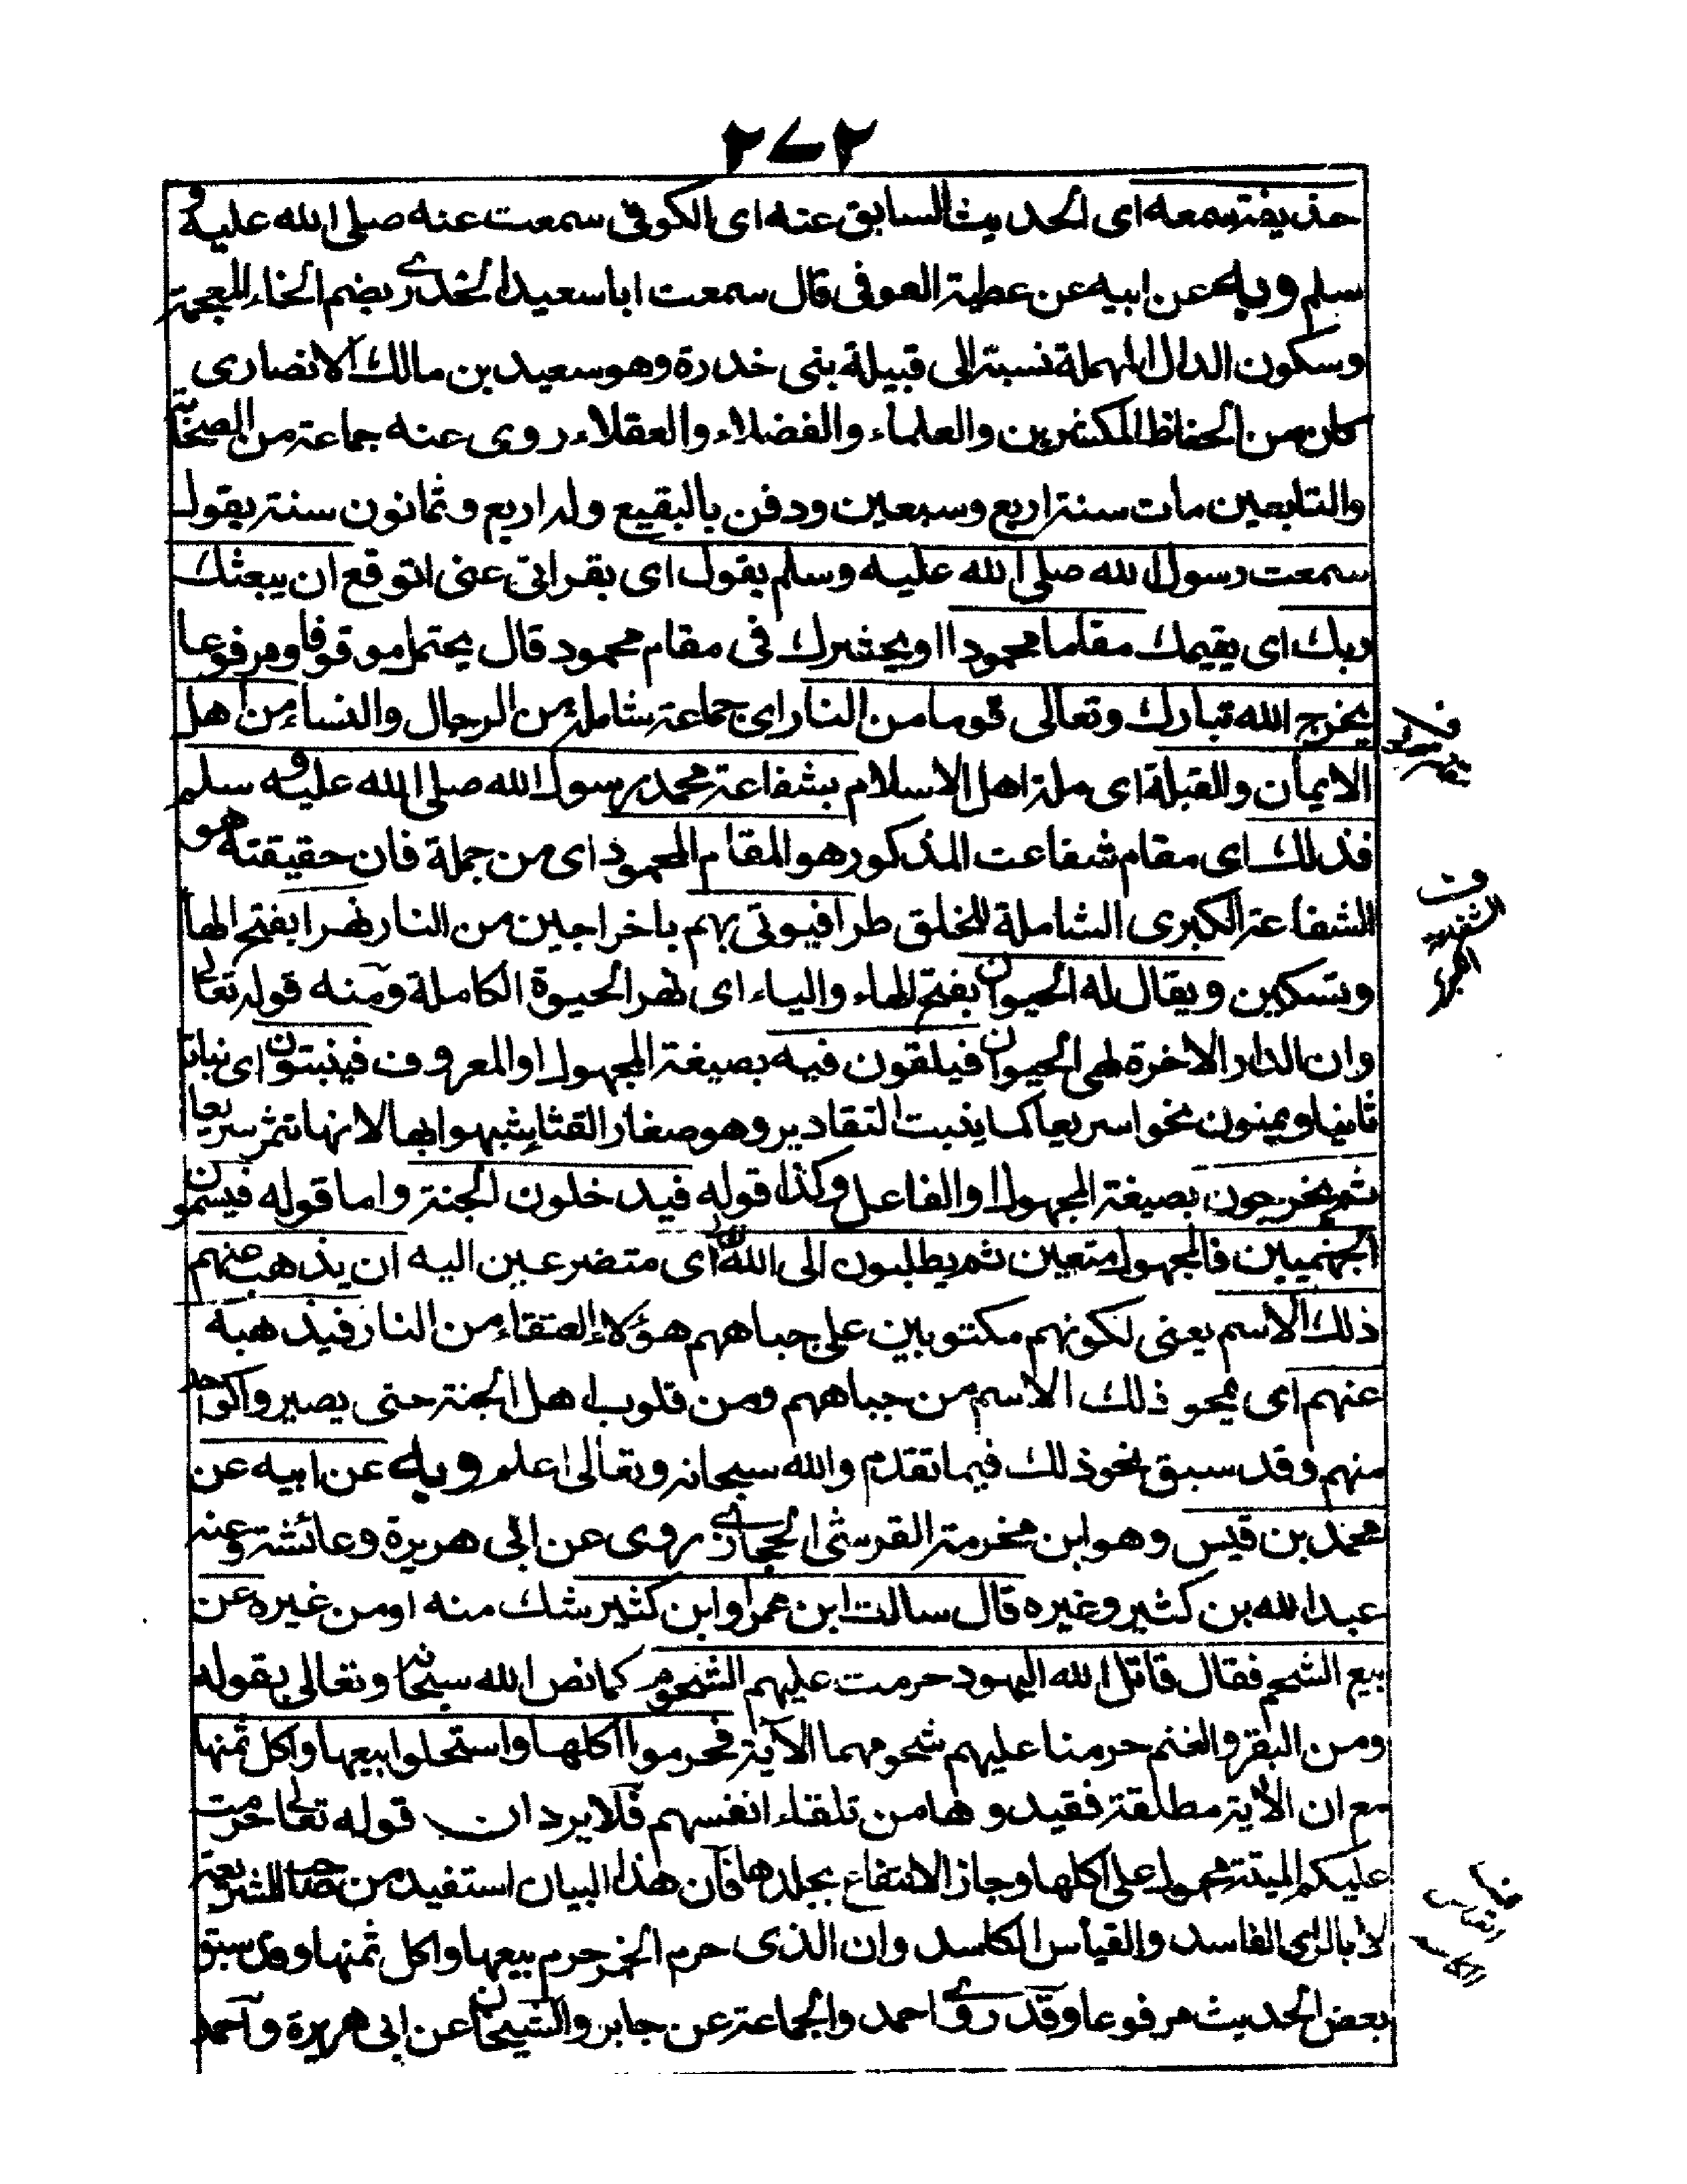 ٢٧٢
حذيفة سمعه اى الحديث السابق عنه اى الكوفى سمعت عنه صلى الله عليه و
سلم وبه عن ابيه عن عطية العوفى قال سمعت ابا سعيد الخدرى بضم الخاء المعجمة
وسكون الدال المهملة نسبة الى قبيلة بنى خدرة وهو سعيد بن مالك الانصارى
كان من الحفاظ المكثرين والعلماء والفضلاء والعقلاء روى عنه جماعة من الصحابة
والتابعين مات سنة اربع وسبعين ودفن بالبقيع وله اربع وثمانون سنة يقول
سمعت رسول الله صلى الله عليه وسلم يقول اى يقرا فى عنى اتوقع ان يبعثك
ربك اى يقيمك مقاما محمودا او يحشرك فى مقام محمود قال يحتمل موقوفا ومرفوعا
يخرج الله تبارك وتعالى قوما من النار اى جماعة شاملة من الرجال والنساء من اهل
الايمان والقبلة اى ملة اهل الاسلام بشفاعة محمد رسول الله صلى الله عليه و سلم
فذلك اى مقام شفاعت المذكور هو المقام المحمود اى من جملة فان حقيقته هو
الشفاعة الكبرى الشاملة للخلق طرا فيوتى بهم باخراجين من النار نهرا بفتح الهاء
وتسكين ويقال له الحيوان بفتح الهاء والياء اى نهر الحيوة الكاملة ومنه قوله تعالى
وان الدار الاخرة لهى الحيوان فيلقون فيه بصيغة المجهول او المعروف فينبتون اى نباتا
ثانيا ويمنون نحوا سريعا كما ينبت التقادير وهو صغار القثا شبهوا بها لانها تثمر سريعا
ثم يخرجون بصيغة المجهول والفاعل وكذا قوله فيدخلون الجنة واما قوله فيسمون
الجهنميين فالمجهول متعين ثم يطلبون الى الله اى متضرعين اليه ان يذهب عنهم
ذلك الاسم يعنى لكونهم مكتوبين على جباههم هؤلاء العتقاء من النار فيذهبه
عنهم اى يمحو ذلك الاسم من جباههم ومن قلوب اهل الجنة حتى يصيروا كواحد
منهم وقد سبق نحو ذلك فيما تقدم والله سبحانه وتعالى اعلم وبه عن ابيه عن
محمد بن قيس وهو ابن مخرمة القرشى الحجازى روى عن ابى هريرة وعائشة وعنه
عبد الله بن كثير وغيره قال سالت ابن عمر او ابن كثير شك منه او من غيره عن
بيع الشحم فقال قاتل الله اليهود حرمت عليهم الشحوم كما نص الله سبحانه وتعالى بقوله
ومن البقر والغنم حرمنا عليهم شحومهما الآية فحرموا اكلها واستحلوا بيعها واكل ثمنها
مع ان الآية مطلقة فقيدوها من تلقاء انفسهم فلا يرد ان قوله تعالى حرمت
عليكم الميتة محمول على اكلها وجاز الانتفاع بجلدها فان هذا البيان استفيد من صاحب الشريعة
لا بالراى الفاسد والقياس الكاسد وان الذى حرم الخمر حرم بيعها واكل ثمنها وقد سبق
بعض الحديث مرفوعا وقد روى احمد والجماعة عن جابر والشيخان عن ابى هريرة واحمد